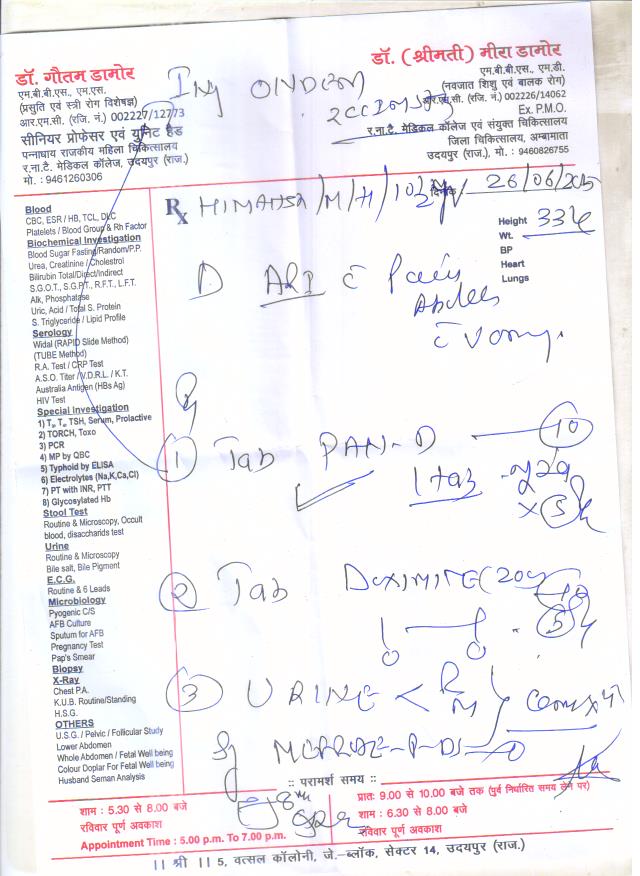 डॉ. गौतम डामोर
एम.बी.बी.एस., एम.एस.
(प्रसुति एवं स्त्री रोग विशेषज्ञ)
आर.एम.सी. (रजि. नं.) 002227/12773
सीनियर प्रोफेसर एवं युनिट हैड
पन्नाधाय राजकीय महिला चिकित्सालय
र.ना.टै. मेडिकल कॉलेज, उदयपुर (राज.)
मो. : 9461260306
डॉ. (श्रीमती) मीरा डामोर
एम.बी.बी.एस., एम.डी.
(नवजात शिशु एवं बालक रोग)
आर.एम.सी. (रजि. नं.) 002226/14062
Ex. P.M.O.
र.ना.टै. मेडिकल कॉलेज एवं संयुक्त चिकित्सालय
जिला चिकित्सालय, अम्बामाता
उदयपुर (राज.), मो. : 9460826755
Inj
2CC
Rx
दिनांक 26/06/2015
Height 336
Wt.
BP
Heart
Lungs
Blood
CBC, ESR / HB, TCL, DLC
Platelets / Blood Group & Rh Factor
Biochemical Investigation
Blood Sugar Fasting/Random/P.P.
Urea, Creatinine / Cholestrol
Bilirubin Total/Direct/Indirect
S.G.O.T., S.G.P.T., R.F.T., L.F.T.
Alk, Phosphatase
Uric, Acid / Total S. Protein
S. Triglyceride / Lipid Profile
Serology
Widal (RAPID Slide Method)
(TUBE Method)
R.A. Test / CRP Test
A.S.O. Titer / V.D.R.L. / K.T.
Australia Antigen (HBs Ag)
HIV Test
Special Investigation
1) T₃, T₄, TSH, Serum, Prolactive
2) TORCH, Toxo
3) PCR
4) MP by QBC
5) Typhoid by ELISA
6) Electrolytes (Na,K,Ca,Cl)
7) PT with INR, PTT
8) Glycosylated Hb
Stool Test
Routine & Microscopy, Occult
blood, disaccharids test
Urine
Routine & Microscopy
Bile salt, Bile Pigment
E.C.G.
Routine & 6 Leads
Microbiology
Pyogenic C/S
AFB Culture
Sputum for AFB
Pregnancy Test
Pap's Smear
Biopsy
X-Ray
Chest P.A.
K.U.B. Routine/Standing
H.S.G.
OTHERS
U.S.G. / Pelvic / Follicular Study
Lower Abdomen
Whole Abdomen / Fetal Well being
Colour Doplar For Fetal Well being
Husband Seman Analysis
ARI
1 Tab PAN-D 10
1 tab
2 Tab
3 URINE < R M
:: परामर्श समय ::
शाम : 5.30 से 8.00 बजे
रविवार पूर्ण अवकाश
Appointment Time : 5.00 p.m. To 7.00 p.m.
प्रातः 9.00 से 10.00 बजे तक (पुर्व निर्धारित समय लेने पर)
शाम : 6.30 से 8.00
रविवार पूर्ण अवकाश
।। श्री ।। 5, वत्सल कॉलोनी, जे.-ब्लॉक, सेक्टर 14, उदयपुर (राज.)